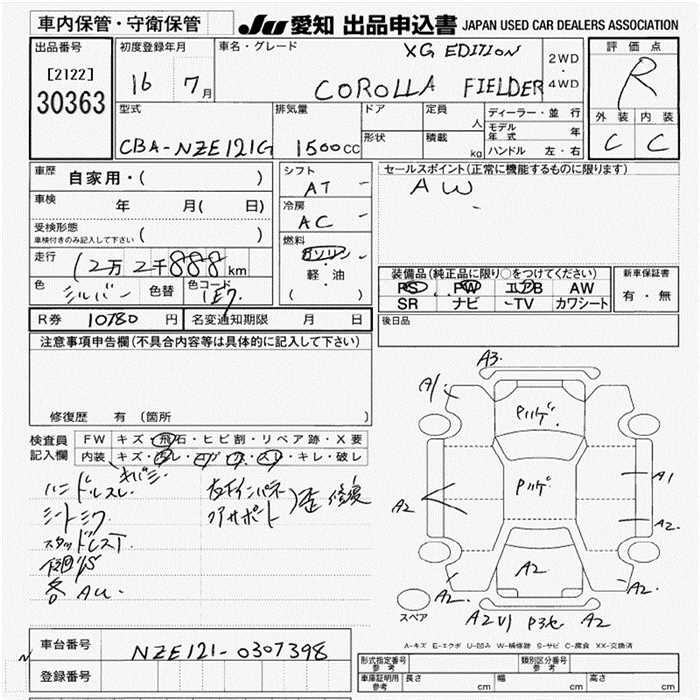 車内保管・守衛保管 JU 愛知 出品申込書 JAPAN USED CAR DEALERS ASSOCIATION
出品番号
[2122]
30363
初度登録年月
16 7月
車名・グレード
XG EDITION
COROLLA FIELDER
2WD
・
4WD
評価点
R
外装 内装
C C
型式
CBA-NZE121G
排気量
1500cc
ドア
形状
定員
人
積載
kg
ディーラー・並行
モデル年式 年
ハンドル 左・右
車歴
自家用・( )
車検 年 月( 日)
受検形態
車検付きのみ記入して下さい ( )
走行 12万2千888km
色 シルバー 色替 色コード 1E7
シフト
AT
冷房
AC
燃料
ガソリン
軽・油
( )
セールスポイント(正常に機能するものに限ります)
AW
装備品(純正品に限り○をつけてください)
PS PW エアB AW
SR ナビ TV カワシート
新車保証書
有・無
R券 10780円 名変通知期限 月 日
後日品
注意事項申告欄(不具合内容等は具体的に記入して下さい)
修復歴 有(箇所
検査員
記入欄
FW キズ・飛石・ヒビ割・リペア跡・X要
内装
ハンドルスレ キバミ
シートミク
スタッドレスT
各AU.
左右インパネ
コアサポート
歪 修復
A3.
A1
Pハゲ
Pハゲ
A2
A1
A2.
A2.
A2.
A2.
A2U1 P3セ A2
スペア
A-キズ E-エクボ U-凹み W-補修跡 S-サビ C-腐食 XX-交換済
車台番号 NZE121-0307398
登録番号
型式指定番号
参考
類別区分番号
参考
車庫証明用
参考
長さ cm 幅 cm 高さ cm